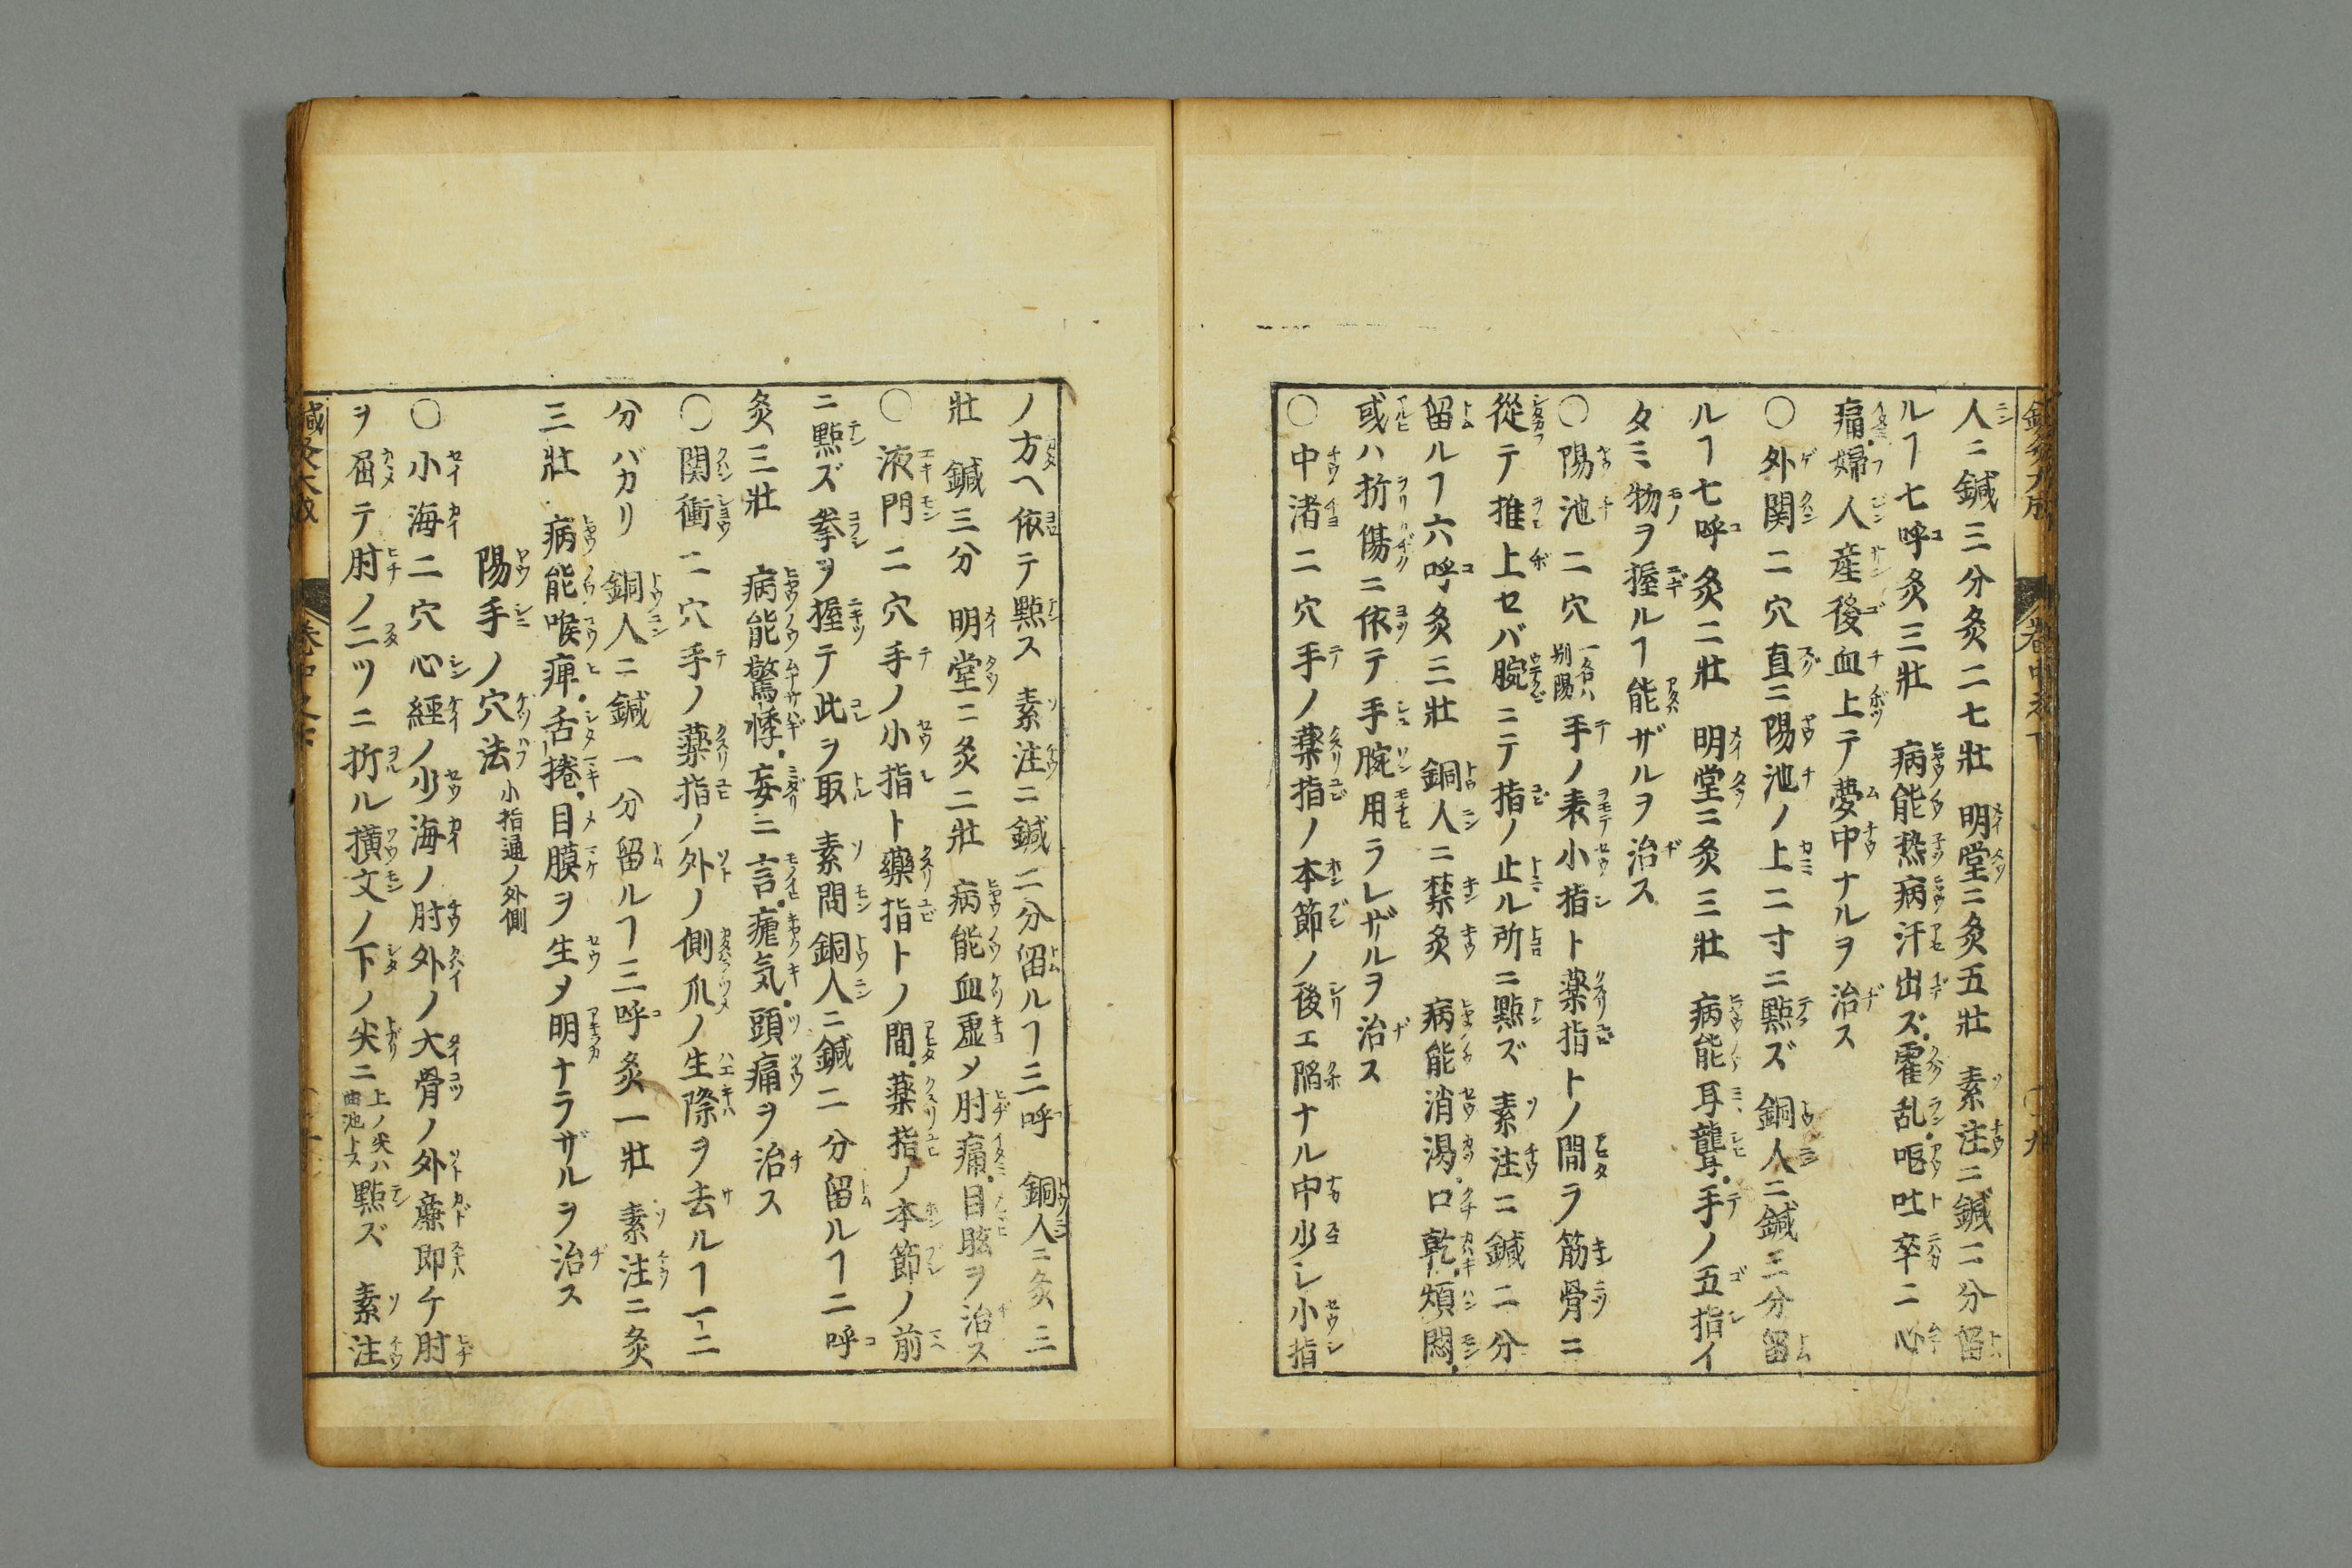 人ニ鍼三分灸二七壯　明堂ニ灸五壯　素注ニ鍼二分留
ルヿ七呼灸三壯　病能熱病汗出ズ霍乱嘔吐卒ニ心
痛婦人産後血上テ夢中ナルヲ治ス
〇外関二穴直ニ陽池ノ上二寸ニ點ズ　銅人ニ鍼三分留
ルヿ七呼灸二壯　明堂ニ灸三壯　病能耳聾手ノ五指イ
タミ物ヲ握ルヿ能ザルヲ治ス
〇陽池二穴一名ハ別陽手ノ表小指ト薬指トノ間ラ筋骨ニ
従テ推上セバ腕ニテ指ノ止ル所ニ點ズ　素注ニ鍼二分
留ルヿ六呼灸三壯　銅人ニ禁灸　病能消渇口乾煩悶
或ハ折傷ニ依テ手腕用ラレザルヲ治ス
〇中渚二穴手ノ薬指ノ本節ノ後エ陥ナル中少シ小指
ノ方ヘ依テ點ス　素注ニ鍼二分留ルヿ三呼　銅人ニ灸三
壯　鍼三分　明堂ニ灸二壯　病能血虚メ肘痛目眩ヲ治ス
〇液門二穴手ノ小指ト藥指トノ間薬指ノ本節ノ前
ニ點ズ拳ヲ握テ此ヲ取　素問銅人ニ鍼二分留ルヿ二呼
灸三壯　病能驚悸妄ニ言瘧気頭痛ヲ治ス
〇関衝二穴手ノ薬指ノ外ノ側爪ノ生際ヲ去ルヿ一二
分バカリ　銅人ニ鍼一分留ルヿ三呼灸一壯　素注ニ灸
三壯　病能喉痺舌捲目膜ヲ生メ明ナラザルヲ治ス
陽手ノ穴法小指通ノ外側
〇小海二穴心經ノ少海ノ肘外ノ大骨ノ外廉即チ肘
ヲ屈テ肘ノ二ツニ折ル横文ノ下ノ尖ニ上ノ尖ハ曲池トス點ズ　素注
鍼灸大成